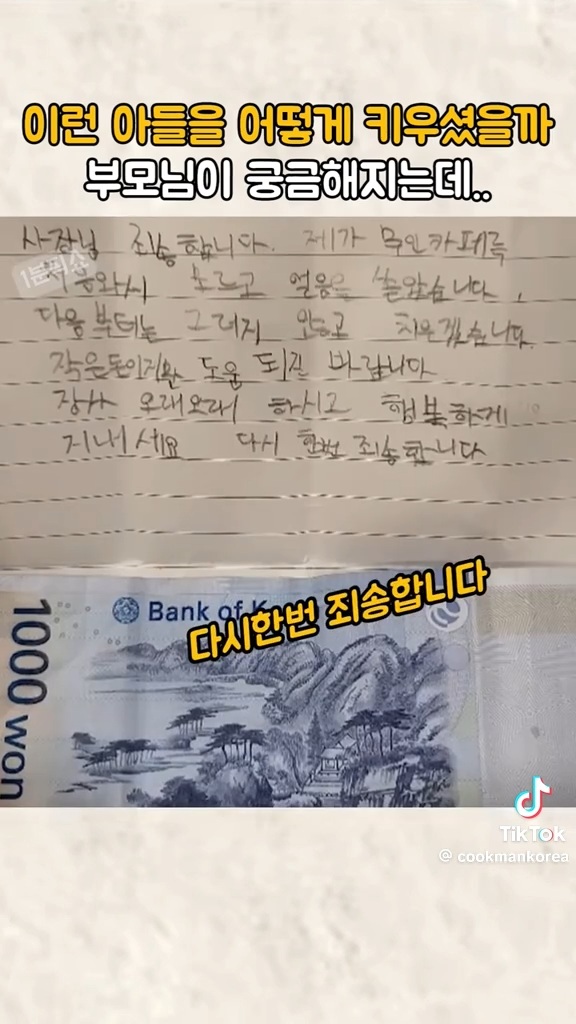 이런 아들을 어떻게 키우셨을까
부모님이 궁금해지는데..
사장님 죄송합니다. 제가 무인카페를
모르고 얼음을 쏟았습니다.
다음부터는 그러지 치우겠습니다.
작은돈이지만 도움 되길 바랍니다
장사 오래오래 하시고 행복하게
지내세요 다시 한번 죄송합니다
다시한번 죄송합니다
Bank of K
1000 won
TikTok
@ cookmankorea